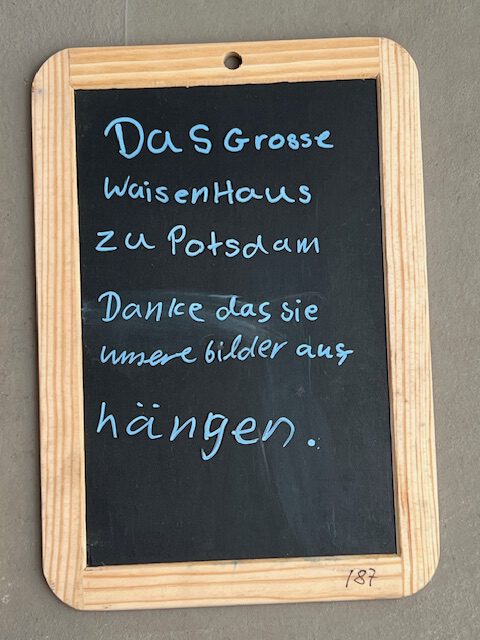 Das Grosse
WaisenHaus
zu Potsdam
Danke das sie
unsere bilder aus
hängen.
187